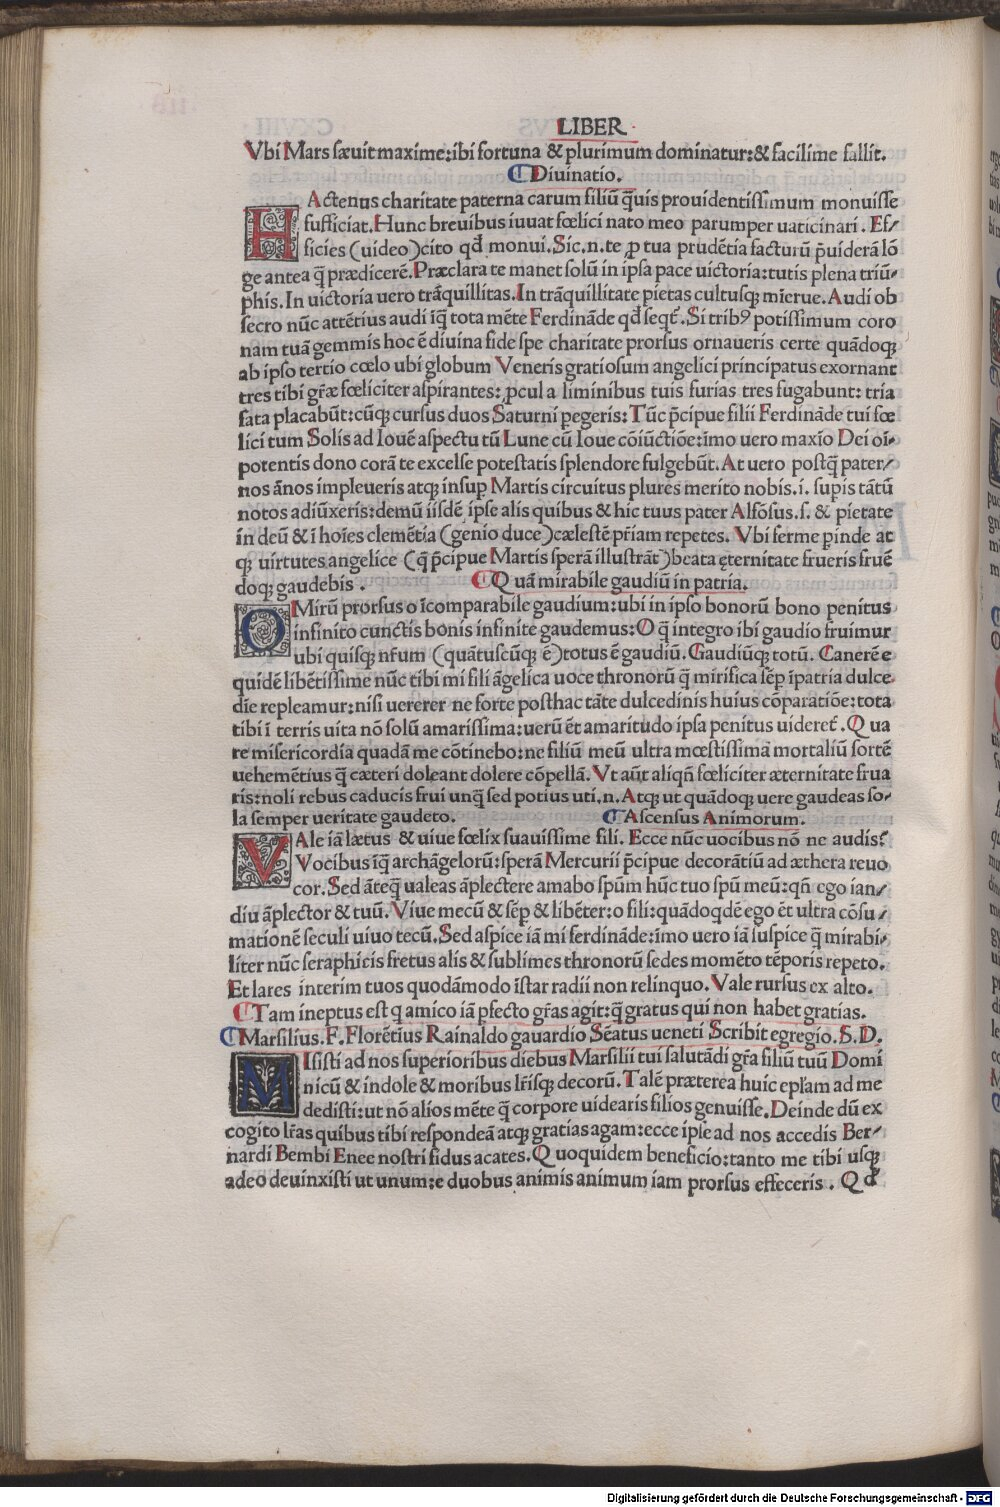 LIBER
Vbi Mars sæuit maxime: ibi fortuna & plurimum dominatur: & facilime fallit.
Diuinatio.
HActenus charitate paterna carum filiū q̄uis prouidentissimum monuisse
sufficiat. Hunc breuibus iuuat fœlici nato meo parumper uaticinari. Ef/
ficies (uideo) cito qđ monui. Sic .n. te ꝓ tua prudētia facturū p̄uiderā lō
ge antea q̄ prædicerē. Præclara te manet solū in ipsa pace uictoria: tutis plena triū-
phis. In uictoria uero trāquillitas. In trāquillitate pietas cultusqꝫ mīerue. Audi ob
secro nūc attētius audi īqꝫ tota mēte Ferdināde qđ seqt̄. Si tribꝰ potissimum coro
nam tuā gemmis hoc ē diuina fide spe charitate prorsus ornaueris certe quādoqꝫ
ab ipso tertio cœlo ubi globum Veneris gratiosum angelici principatus exornant
tres tibi gr̄æ fœliciter aspirantes: ꝓcul a liminibus tuis furias tres fugabunt: tria
fata placabūt: cūqꝫ cursus duos Saturni ꝑegeris: Tūc p̄cipue filii Ferdināde tui fœ
lici tum Solis ad Iouē aspectu tū Lune cū Ioue cōiūctiōe: imo uero maxīo Dei oī-
potentis dono corā te excelse potestatis splendore fulgebūt. At uero postq̄ pater/
nos ānos impleueris atqꝫ insuꝑ Martis circuitus plures merito nobis .i. supis tātū
notos adiūxeris: demū iisdē ipse alis quibus & hic tuus pater Alfōsus .s. & pietate
in deū & ī hoīes clemētia (genio duce) cælestē pr̄iam repetes. Vbi ferme ꝑinde at
qꝫ uirtutes angelice (q̄ p̄cipue Martis sperā illustrāt) beata ęternitate frueris fruē
doqꝫ gaudebis. Quā mirabile gaudiū in patria.
OMirū prorsus o īcomparabile gaudium: ubi in ipso bonorū bono penitus
infinito cunctis bonis infinite gaudemus: O q̄ integro ibi gaudio fruimur
ubi quisqꝫ nr̄um (quātuscūqꝫ ē) totus ē gaudiū. Gaudiūqꝫ totū. Canerē e
quidē libētissime nūc tibi mi fili āgelica uoce thronorū q̄ mirifica sēꝑ īpatria dulce
dīe repleamur: nisi uererer ne forte posthac tāte dulcedinis huius cōparatiōe: tota
tibi ī terris uita nō solū amarissima: uerū ēt amaritudo ipsa penitus uideret̄. Qua
re misericordia quadā me cōtinebo: ne filiū meū ultra mœstissimā mortaliū sortē
uehemētius q̄ cæteri doleant dolere cōpellā. Vt aūt aliqn̄ fœliciter æternitate frua
ris: noli rebus caducis frui unq̄ sed potius uti .n. Atqꝫ ut quādoqꝫ uere gaudeas so-
la semper ueritate gaudeto. Ascensus Animorum.
VAle iā lætus & uiue fœlix suauissime fili. Ecce nūc uocibus nō ne audis?
Vocibus īqꝫ archāgelorū: sperā Mercurii p̄cipue decorātiū ad æthera reuo
cor. Sed āteq̄ ualeas āplectere amabo spūm hūc tuo spū meū: qn̄ ego ian/
diu āplector & tuū. Viue mecū & sēꝑ & libēter: o fili: quādoqdē ego ēt ultra cōsu/
mationē seculi uiuo tecū. Sed aspice iā mi ferdināde: imo uero iā suspice q̄ mirabi-
liter nūc seraphicis fretus alis & sublimes thronorū sedes momēto tēporis repeto.
Et lares interim tuos quodāmodo īstar radii non relinquo. Vale rursus ex alto.
Tam ineptus est q amico iā ꝑfecto gr̄as agit: q̄ gratus qui non habet gratias.
Marsilius. F. Florētīus Rainaldo gauardio Sēatus ueneti Scribit egregio. S. D.
MIsisti ad nos superioribus diebus Marsilii tui salutādi gr̄a filiū tuū Domi
nicū & indole & moribus lr̄isqꝫ decorū. Talē præterea huic epl̄am ad me
dedisti: ut nō alios mēte q̄ corpore uidearis filios genuisse. Deinde dū ex
cogito lr̄as quibus tibi respondeā atqꝫ gratias agam: ecce ipse ad nos accedis Ber-
nardi Bembi Enee nostri fidus acates. Quoquidem beneficio: tanto me tibi usqꝫ
adeo deuinxisti ut unum: e duobus animis animum iam prorsus effeceris. Qđ
Digitalisierung gefördert durch die Deutsche Forschungsgemeinschaft - DFG